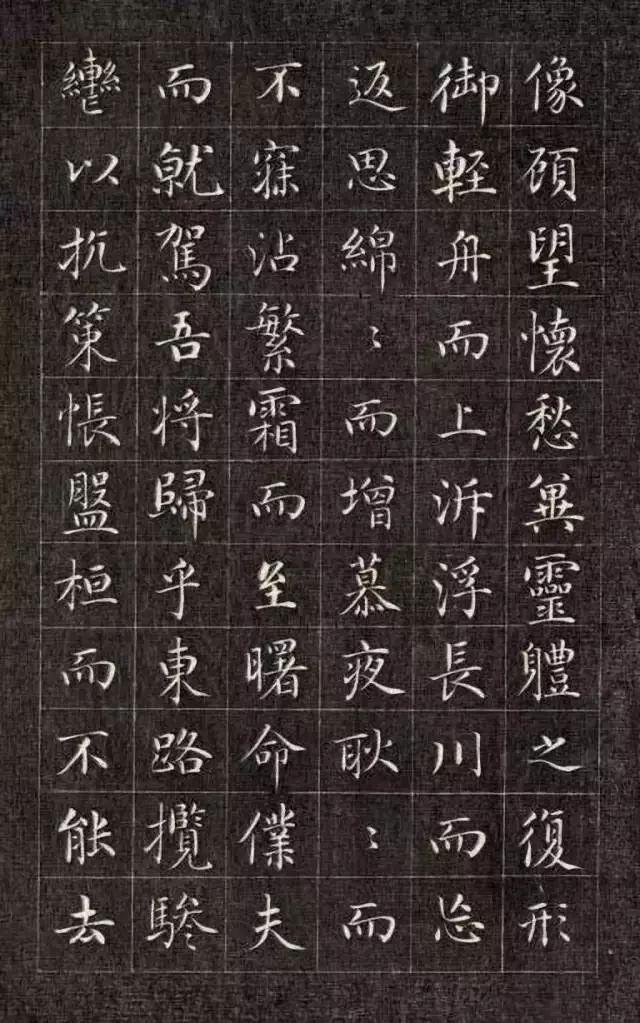 像頋望懷愁兾靈體之復形
御輊舟而上泝浮長川而忘
返思綿〻而增慕夜耿〻而
不寐沾繁霜而至曙命僕夫
而就駕吾将歸乎東路攬騑
轡以抗策悵盤桓而不能去